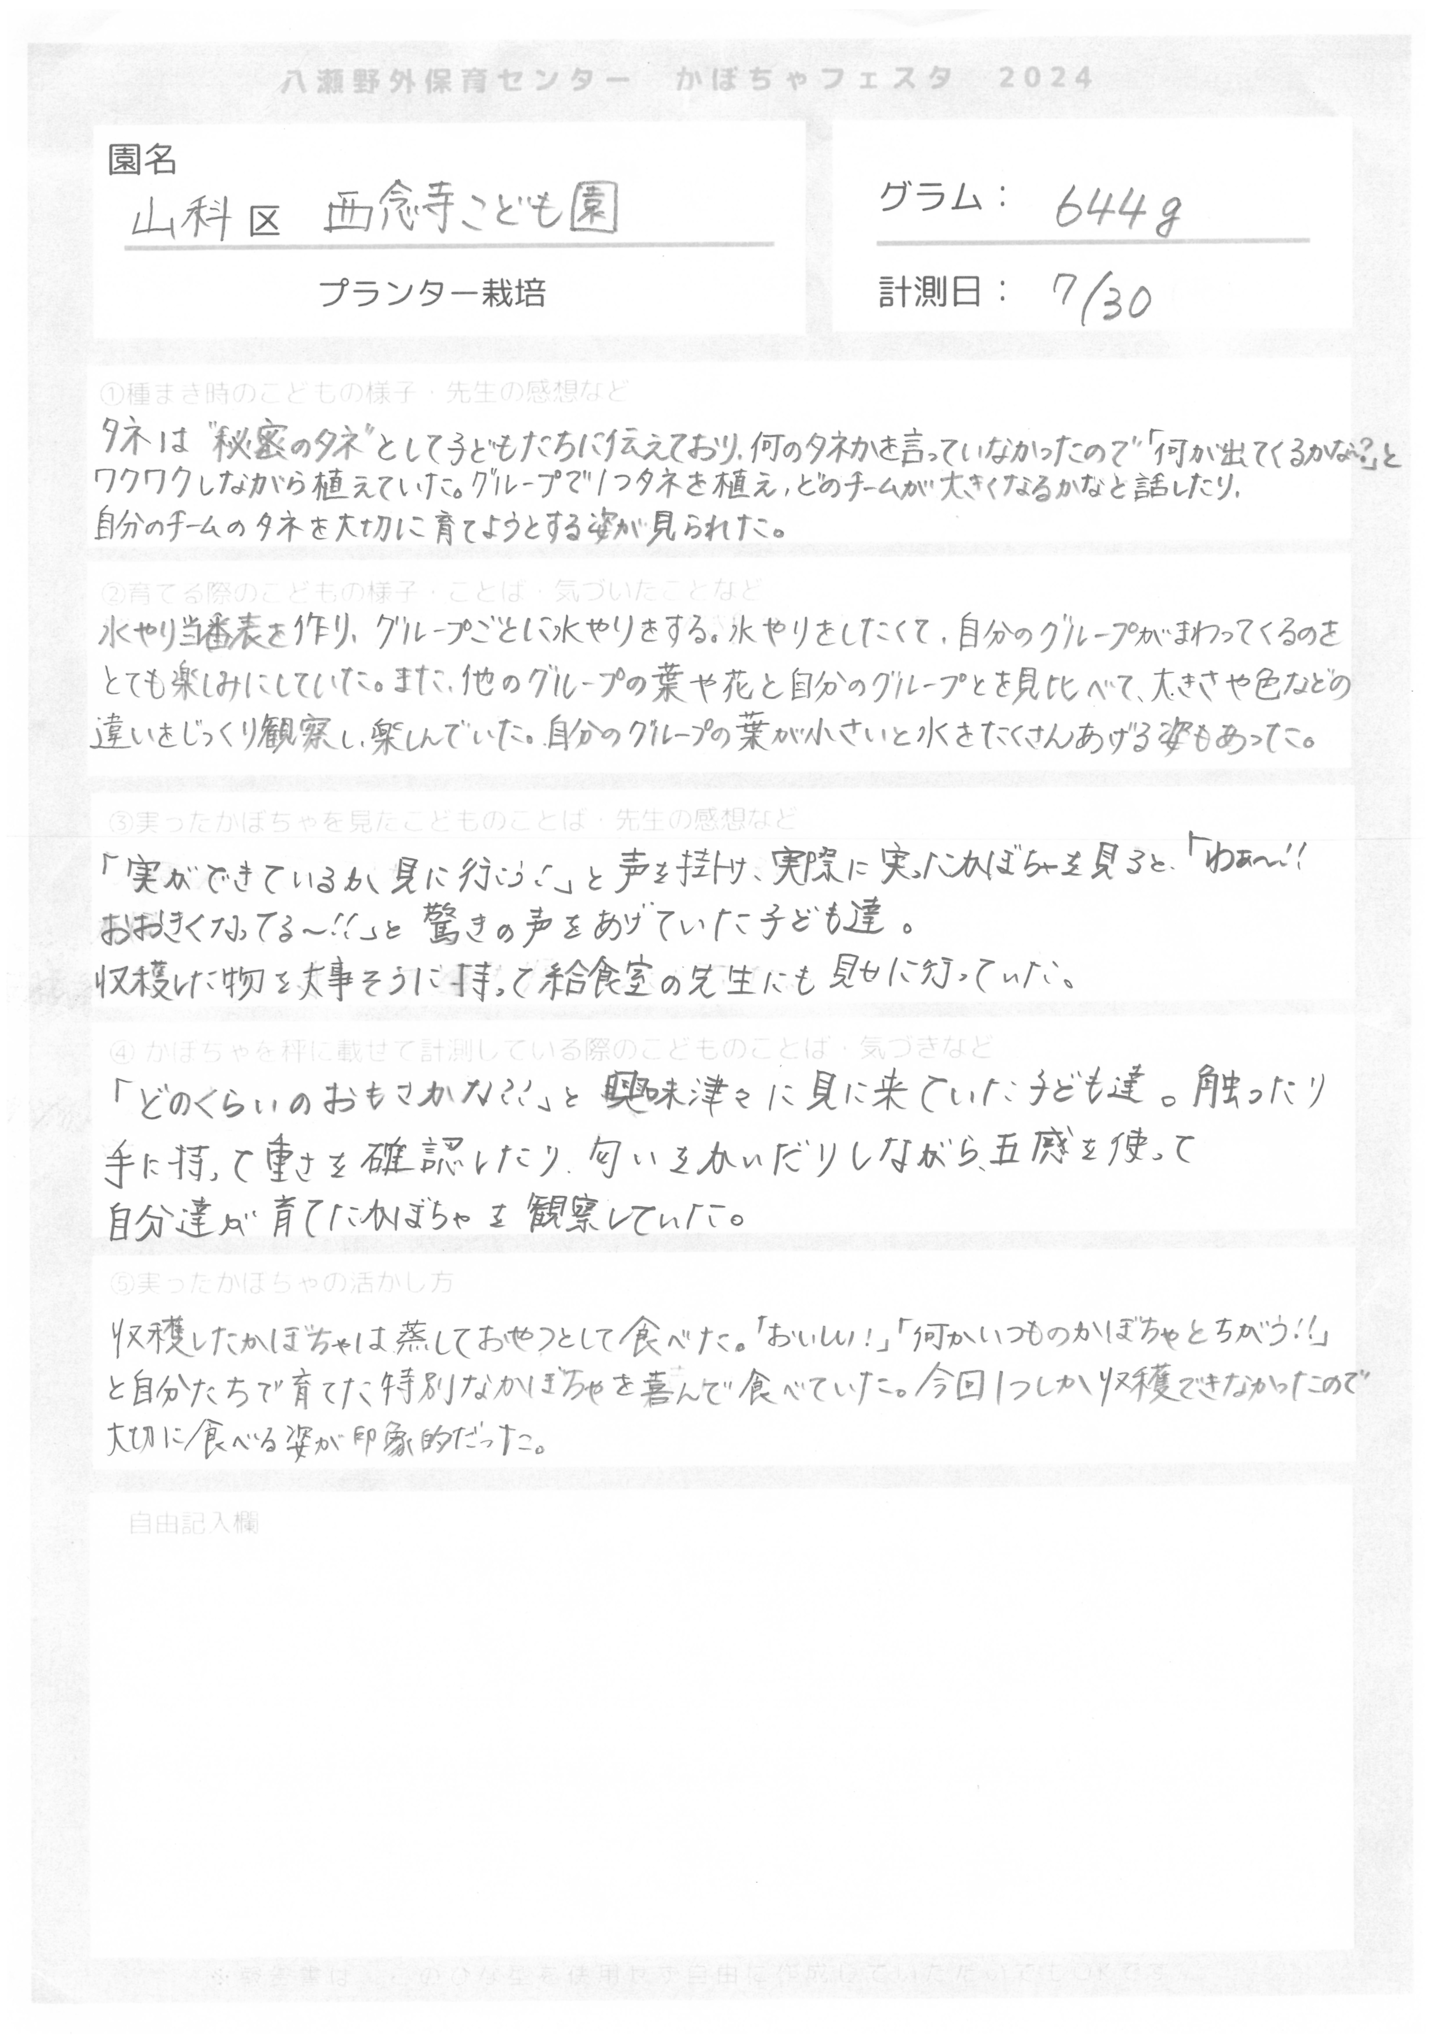 八瀬野外保育センター　かぼちゃフェスタ　2024
園名
山科区 西念寺こども園
プランター栽培
グラム： 644g
計測日： 7/30
①種まき時のこどもの様子・先生の感想など
タネは"秘密のタネ"として子どもたちに伝えており、何のタネかを言っていなかったので「何が出てくるかな〜?」と
ワクワクしながら植えていた。グループで1つタネを植え、どのチームが大きくなるかなと話したり、
自分のチームのタネを大切に育てようとする姿が見られた。
②育てる際のこどもの様子・ことば・気づいたことなど
水やり当番表を作り、グループごとに水やりをする。水やりをしたくて、自分のグループがまわってくるのを
とても楽しみにしていた。また、他のグループの葉や花と自分のグループとを見比べて、大きさや色などの
違いをじっくり観察し、楽しんでいた。自分のグループの葉が小さいと水をたくさんあげる姿もあった。
③実ったかぼちゃを見たこどものことば・先生の感想など
「実ができているか、見に行こう!」と声を掛け、実際に実ったかぼちゃを見ると、「わぁ〜!!
おおきくなってる〜!!」と驚きの声をあげていた子ども達。
収穫した物を大事そうに持って給食室の先生にも見せに行っていた。
④ かぼちゃを秤に載せて計測している際のこどものことば・気づきなど
「どのくらいのおもさかな??」と興味津々に見に来ていた子ども達。触ったり
手に持って重さを確認したり、匂いをかいだりしながら、五感を使って
自分達が育てたかぼちゃを観察していた。
⑤実ったかぼちゃの活かし方
収穫したかぼちゃは蒸しておやつとして食べた。「おいしい!」「何かいつものかぼちゃとちがう!!」
と自分たちで育てた特別なかぼちゃを喜んで食べていた。今回1つしか収穫できなかったので
大切に食べる姿が印象的だった。
自由記入欄
※報告書は、このひな型を使用せず自由に作成していただいてもOKです。